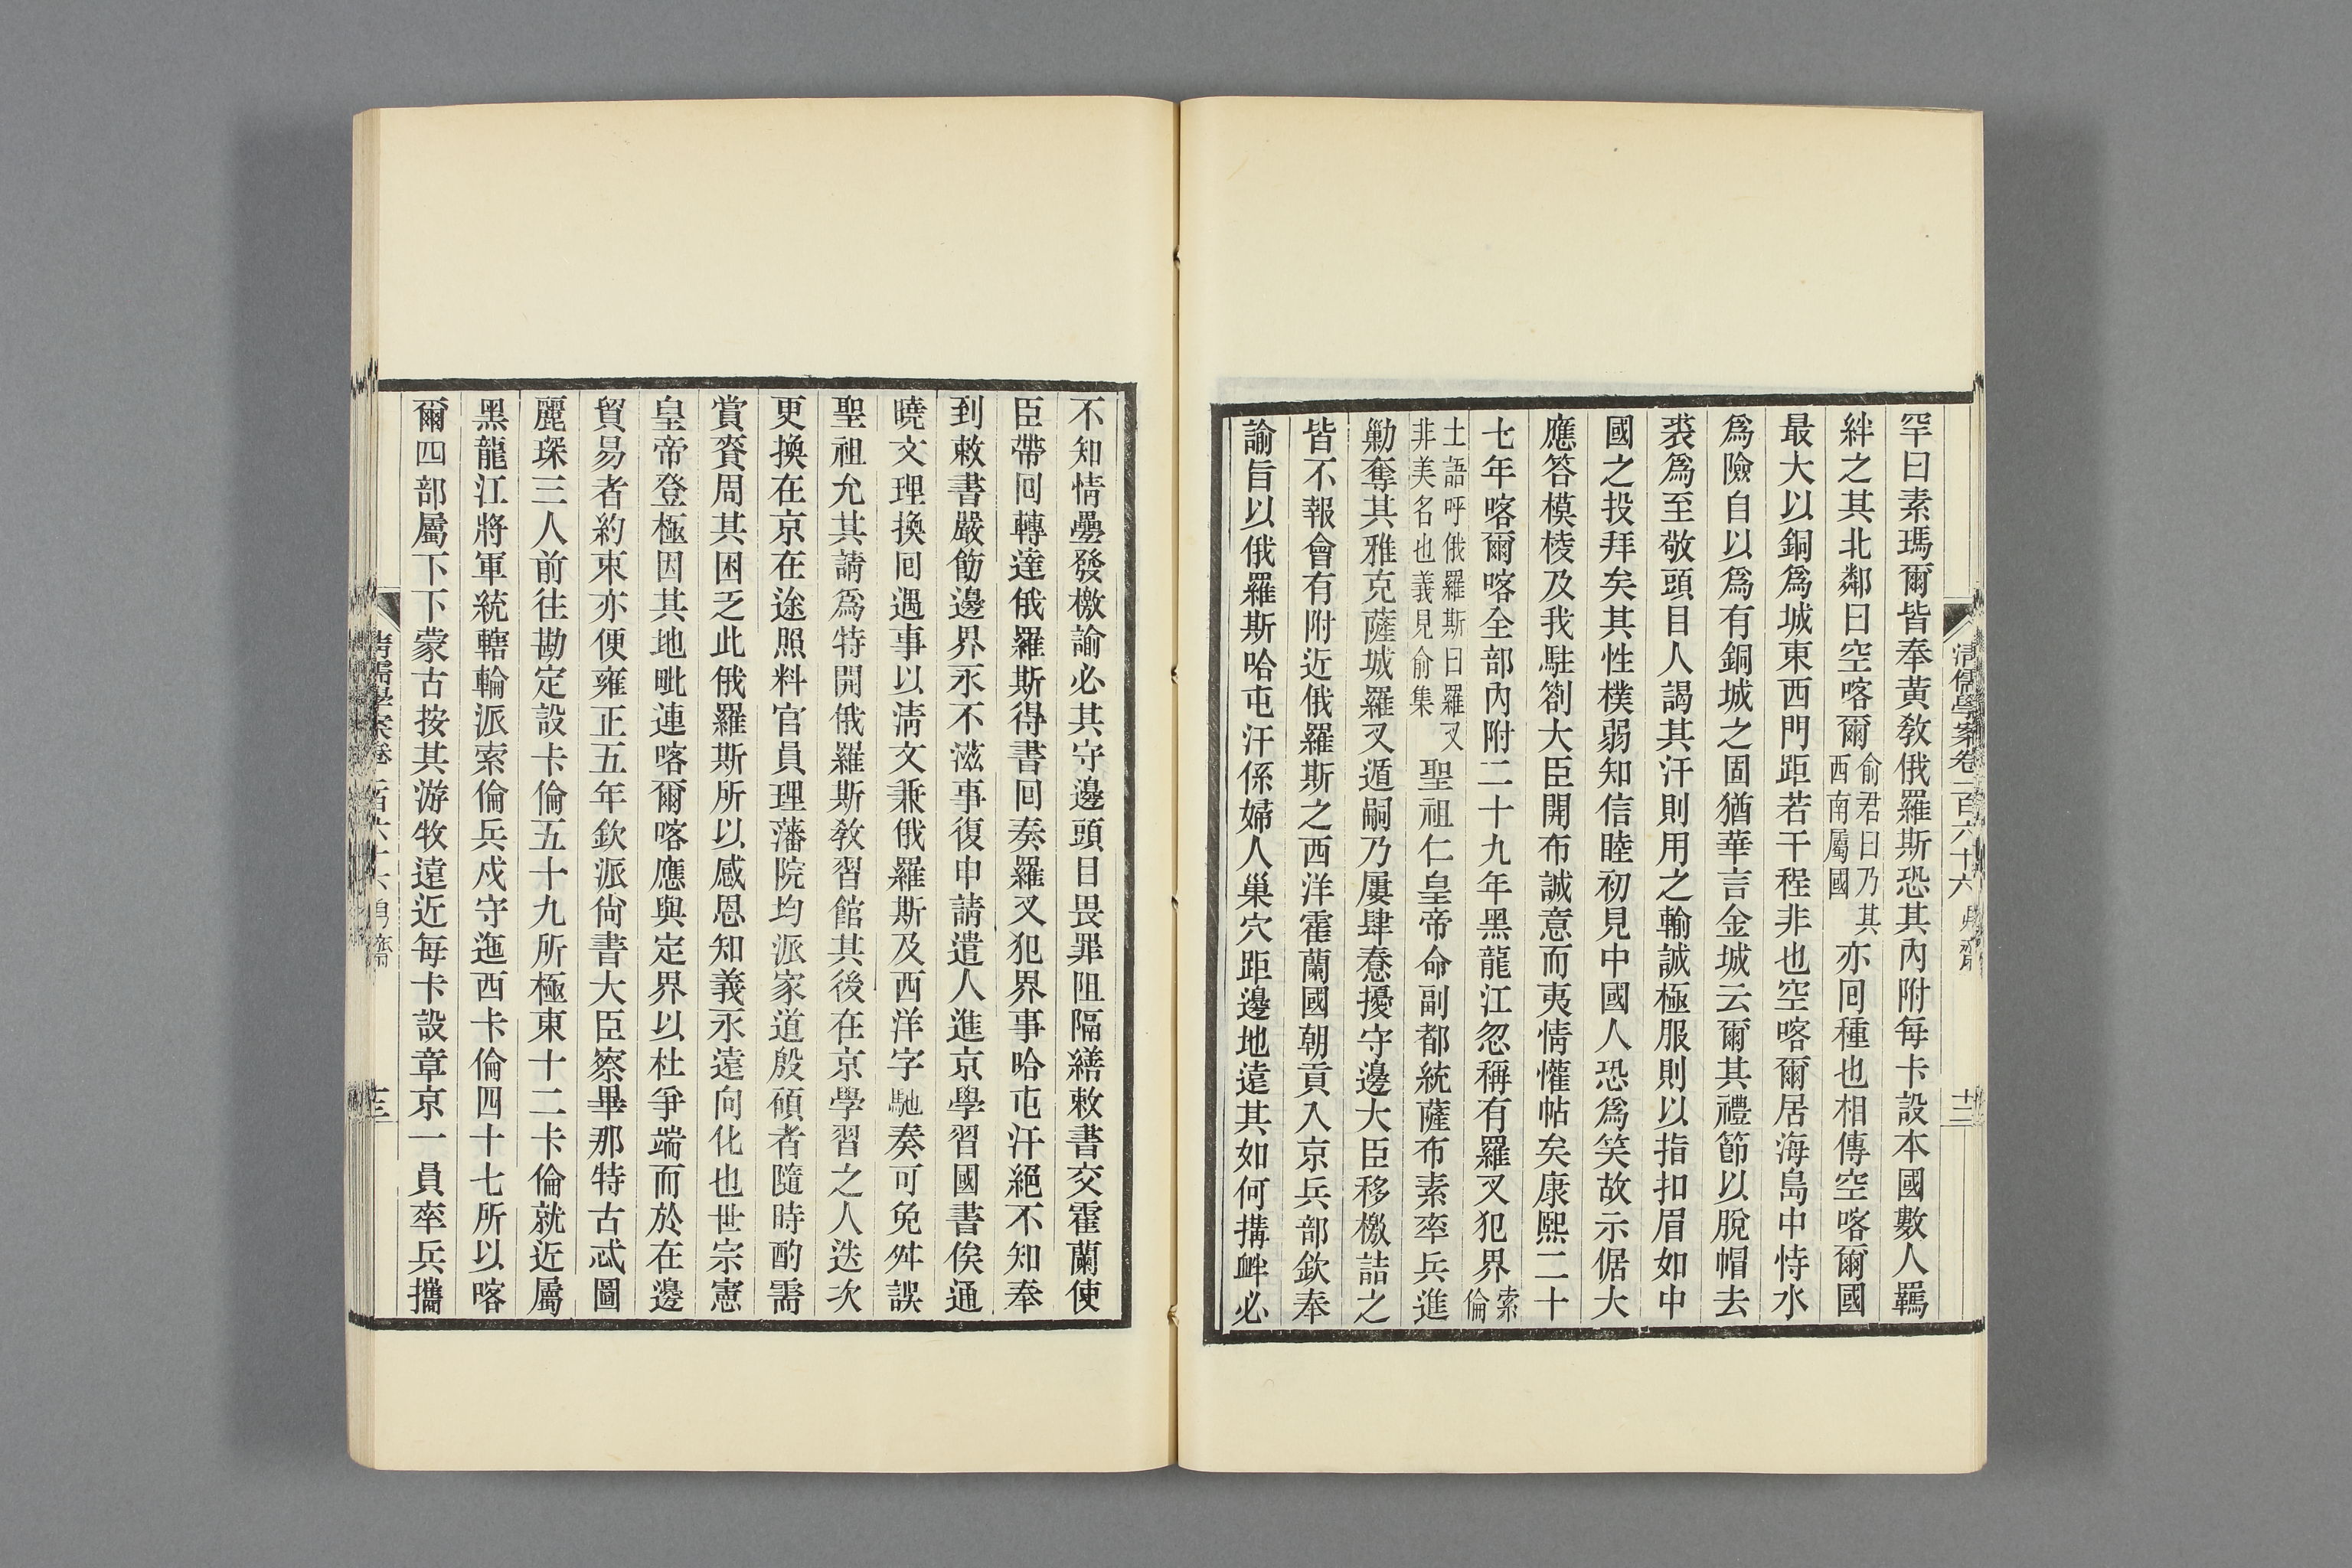 清儒學案卷一百六十六
十二
罕曰素瑪爾皆奉黃敎俄羅斯恐其內附每卡設本國數人羈
絆之其北鄰曰空喀爾俞君曰乃其西南屬國亦囘種也相傳空喀爾國
最大以銅爲城東西門距若干程非也空喀爾居海島中恃水
爲險自以爲有銅城之固猶華言金城云爾其禮節以脫帽去
裘爲至敬頭目人謁其汗則用之輸誠極服則以指扣眉如中
國之投拜矣其性樸弱知信睦初見中國人恐爲笑故示倨大
應答模棱及我駐劄大臣開布誠意而夷情懽帖矣康熙二十
七年喀爾喀全部內附二十九年黑龍江忽稱有羅叉犯界索倫
土語呼俄羅斯曰羅叉非美名也義見俞集聖祖仁皇帝命副都統薩布素率兵進
勦奪其雅克薩城羅叉遁嗣乃屢肆惷擾守邊大臣移檄詰之
皆不報會有附近俄羅斯之西洋霍蘭國朝貢入京兵部欽奉
諭旨以俄羅斯哈屯汗係婦人巢穴距邊地遠其如何搆衅必
不知情疊發檄諭必其守邊頭目畏罪阻隔繕敕書交霍蘭使
臣帶囘轉達俄羅斯得書囘奏羅叉犯界事哈屯汗絕不知奉
到敕書嚴飭邊界永不滋事復申請遣人進京學習國書俟通
曉文理換囘遇事以淸文兼俄羅斯及西洋字馳奏可免舛誤
聖祖允其請爲特開俄羅斯敎習館其後在京學習之人迭次
更換在京在途照料官員理藩院均派家道殷碩者隨時酌需
賞賚周其困乏此俄羅斯所以感恩知義永遠向化也世宗憲
皇帝登極因其地毗連喀爾喀應與定界以杜爭端而於在邊
貿易者約束亦便雍正五年欽派尙書大臣察畢那特古忒圖
麗琛三人前往勘定設卡倫五十九所極東十二卡倫就近屬
黑龍江將軍統轄輪派索倫兵戍守迤西卡倫四十七所以喀
爾四部屬下下蒙古按其游牧遠近每卡設章京一員率兵攜